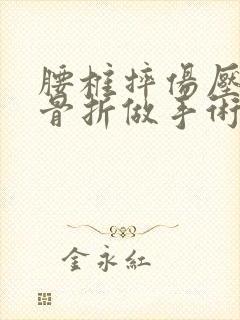 腰椎摔傷壓
骨折做手術
金永紅